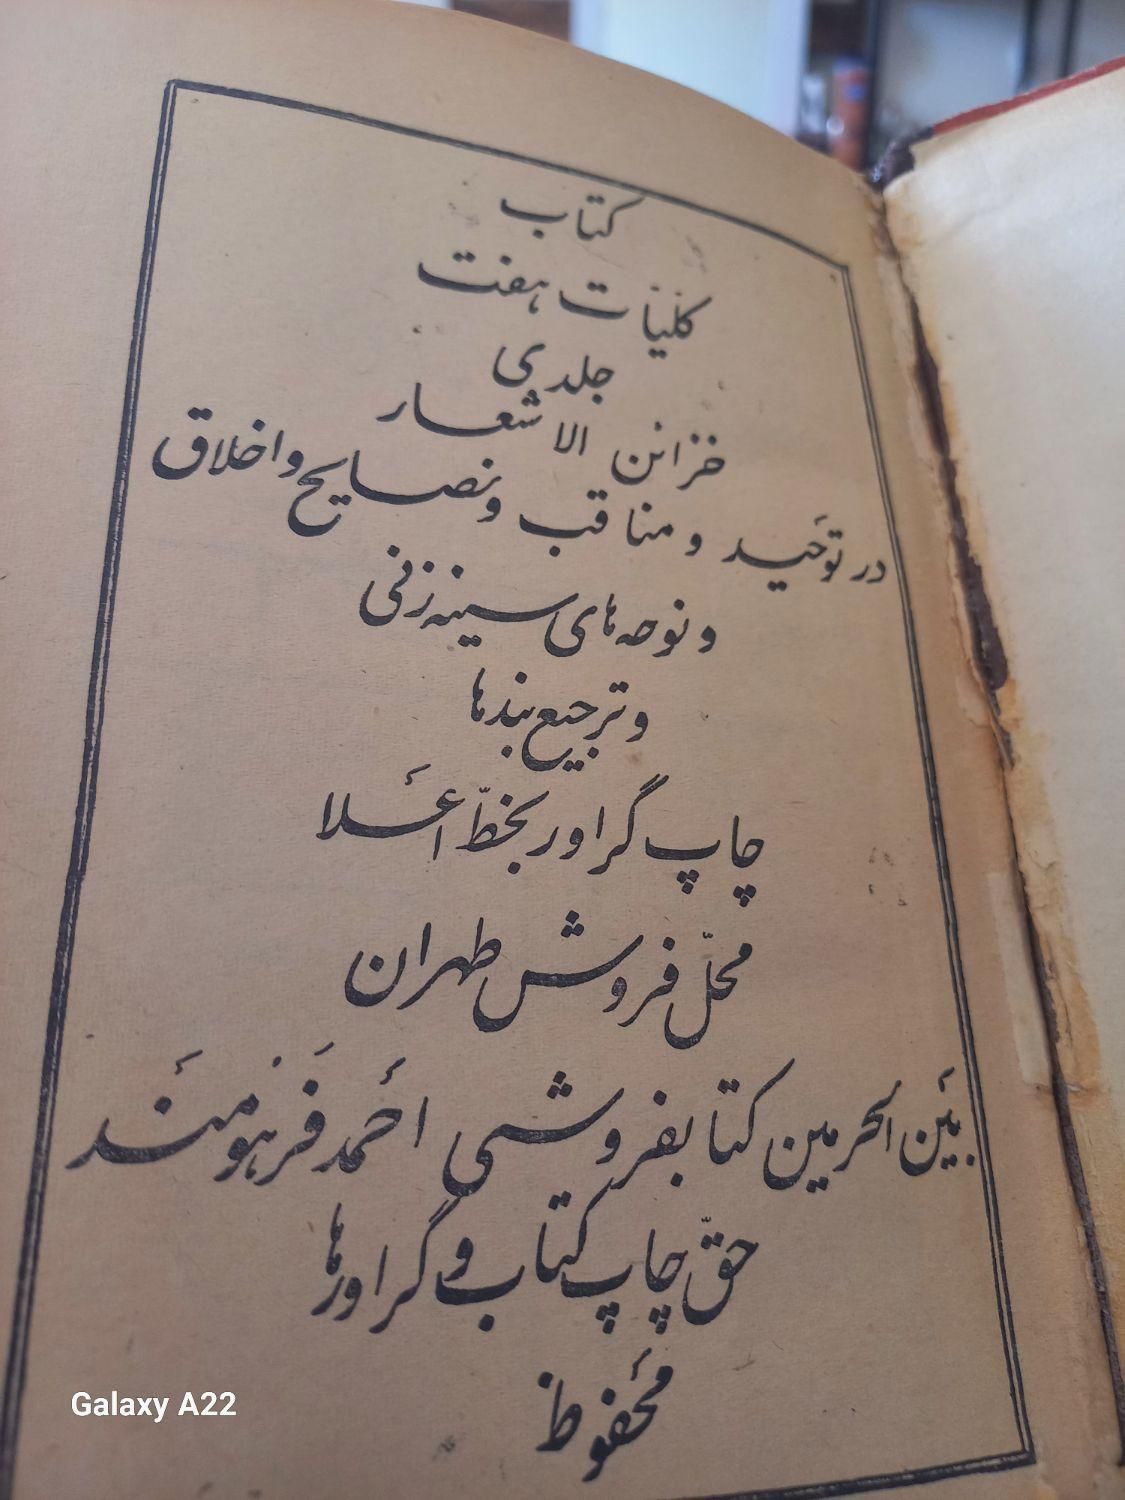 کتاب
کلیّات هفت
جلدی
خزائن الاشعار
در توَحید و مناقب و نصایح و اخلاق
و نوحه های سینه زنی
و ترجیع بندها
چاپ گراور بخطّ اَعَلا
محلّ فروش طهران
بَین الحرمین کتابفروشی اَحمد فَرهومَند
حقّ چاپ کتاب و گراورها
محَفوظ
Galaxy A22